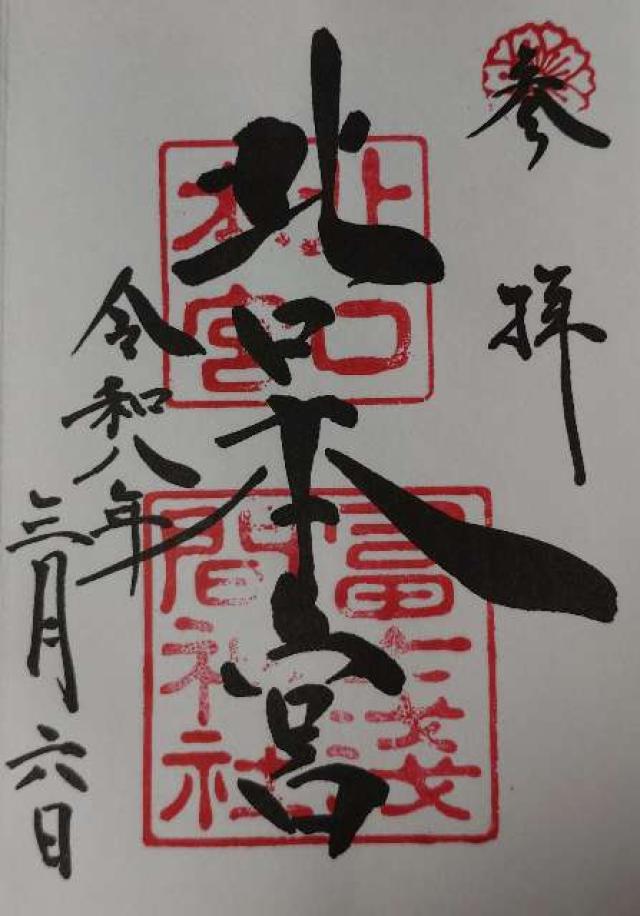 参拝
北口本宮
令和八年
三月六日
北口
本宮
冨士浅
間神社